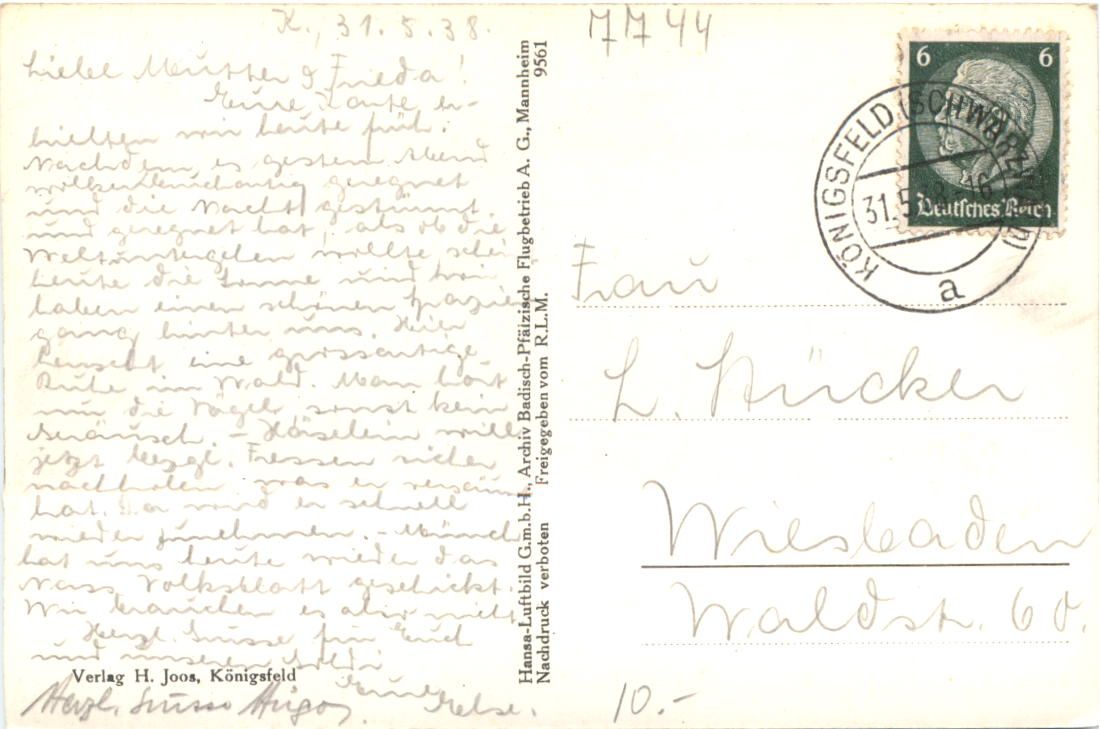 K., 31.5.38.
Liebe Mutter & Frieda!
Eure Karte er-
hielten wir heute früh.
Nachdem es gestern Abend
geregnet
und die Nacht gestürmt
und geregnet hat, als ob die
Welt untergehen wollte, schei
heute die Sonne und wir
haben einen schönen Spazier
gang hinter uns. Hier
herrscht eine grossartige
Ruhe im Wald. Man hört
nur die Vögel, sonst kein
Geräusch. – Häselein will
jetzt bezgl. Fressen sicher
nachholen was er versäumt
hat. Da wird er schnell
wieder zunehmen. –
hat uns heute wieder das
Nass. Volksblatt geschickt.
Wir brauchen es aber nicht.
Herzl. Grüsse für Euch
und unseren
Eure
Herzl. Grüsse Hugo.
Verlag H. Joos, Königsfeld
Hansa-Luftbild G.m.b.H., Archiv Badisch-Pfälzische Flugbetrieb A. G., Mannheim
Nachdruck verboten Freigegeben vom R.L.M. 9561
7744
6 6
Deutsches Reich
KÖNIGSFELD (SCHWARZWALD)
31.5.38.-16
a
Frau
L. Stücker
Wiesbaden
Waldstr. 60.
10.-